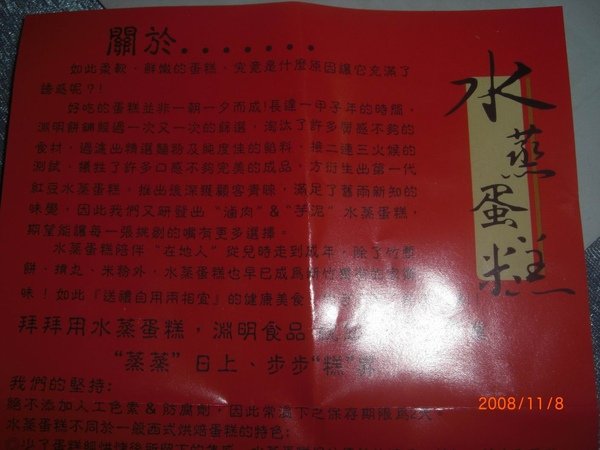 關於........
水蒸蛋糕
如此柔軟、鮮嫩的蛋糕、究竟是什麼原因讓它充滿了
誘惑呢?!
好吃的蛋糕並非一朝一夕而成!長達一甲子年的時間，
淵明餅舖經過一次又一次的篩選，淘汰了許多質感不夠的
食材，過濾出精選麵粉及純度佳的餡料、接二連三火候的
測試、犧牲了許多口感不夠完美的成品，方衍生出第一代
紅豆水蒸蛋糕，推出後深獲顧客青睞，滿足了舊雨新知的
味覺，因此我們又研發出"滷肉"&"芋泥"水蒸蛋糕，
期望能讓每一張挑剔的嘴有更多選擇。
水蒸蛋糕陪伴"在地人"從兒時走到成年，除了竹塹
餅、摃丸、米粉外，水蒸蛋糕也早已成為新竹
味！如此『送禮自用兩相宜』的健康美食
拜拜用水蒸蛋糕，淵明食品
"蒸蒸"日上、步步"糕"
我們的堅持:
絕不添加人工色素&防腐劑，因此常溫下之保存期限為2天
水蒸蛋糕不同於一般西式烘焙蛋糕的特色:
2008/11/8